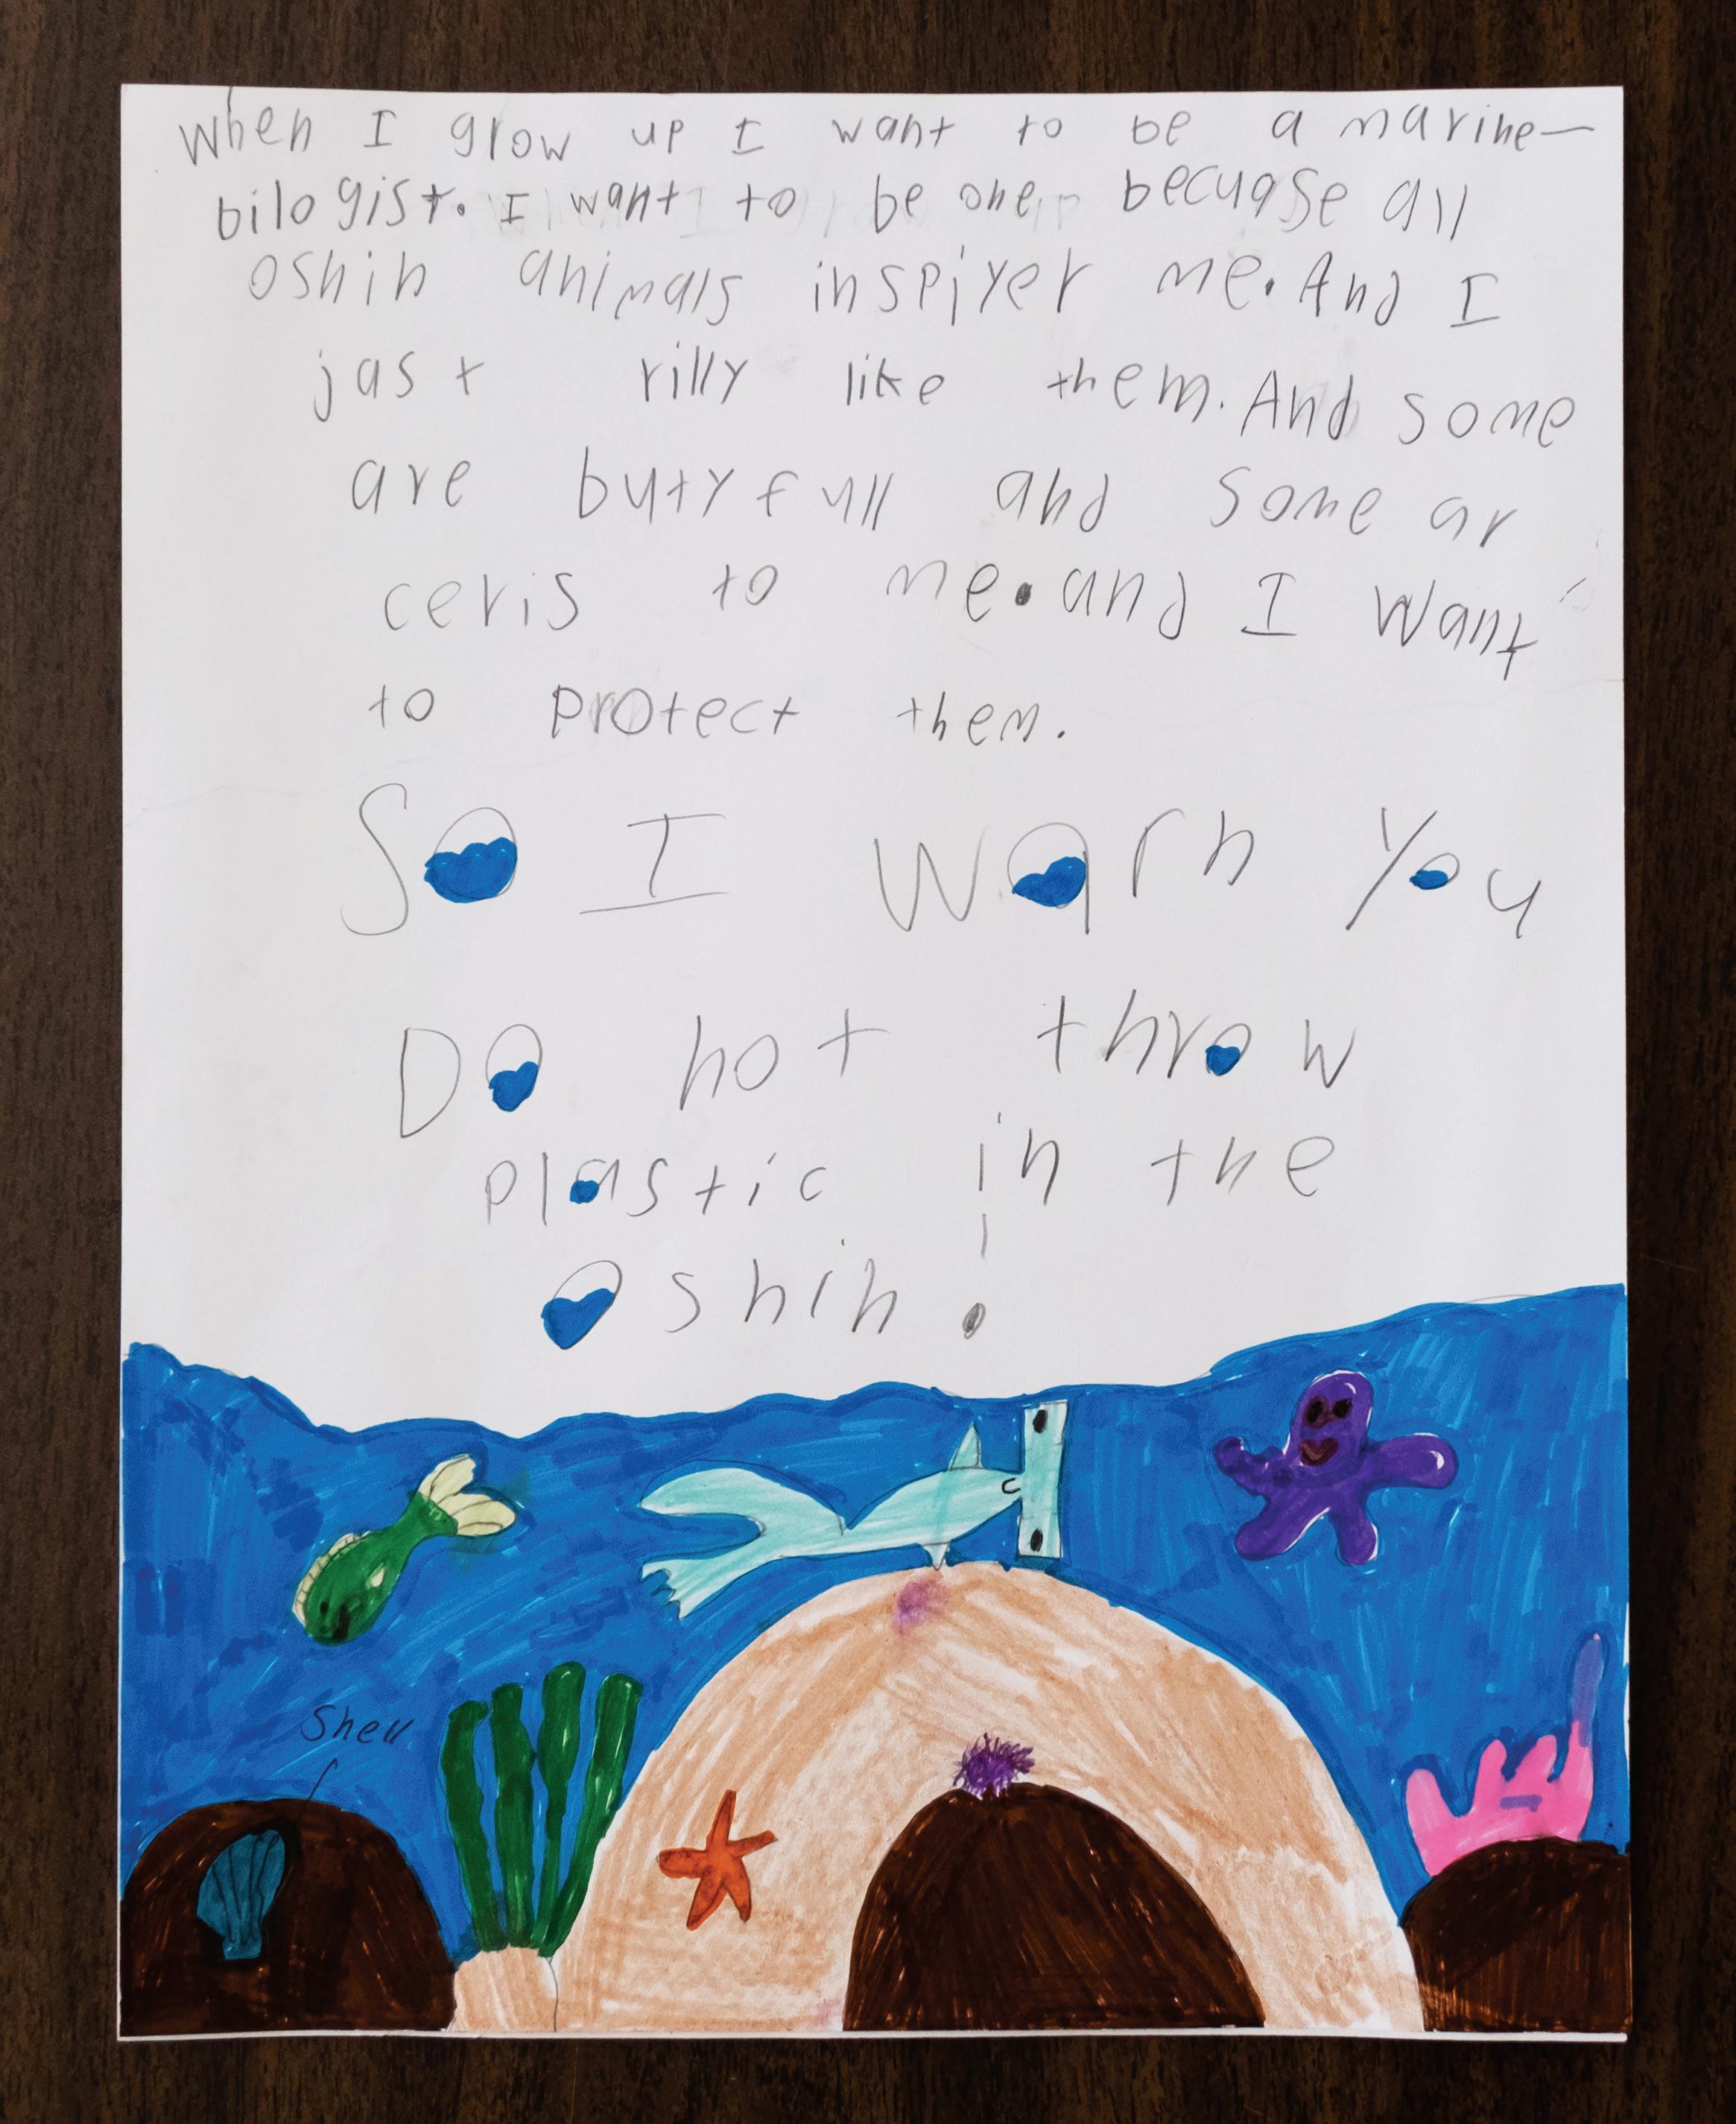 When I grow up I want to be a marine-
bilogist. I want to be one becuase all
oshin animals inspiyer me. And I
jast rilly like them. And some
are butyfull and some ar
ceris to me. and I want
to protect them.
So I warn you
Do not throw
plastic in the
oshin!
Shell